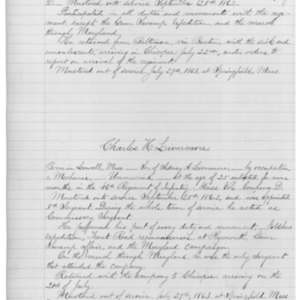 Mustered into service September 26th 1862.
Participated in all duties and movements with the regi-
ment except the Gum Swamp Expedition and the march
through Maryland.
He returned from Baltimore, via Boston, with the sick and
convalescents, arriving in Chicopee July 22nd, under orders to
report on arrival of the regiment.
Mustered out of service July 29th 1863 at Springfield, Mass
Charles H. Livermore
Born in Lowell, Mass Son of Livermore by occupation
a Mechanic. Unmarried. At the age of 25 enlisted for nine
months in the 46th Regiment of Infantry, Mass. Vols. Company D.
Mustered into service September 26th 1862, and was appointed
Sergeant. During the whole term of service he acted as
Commissary Sergeant.
He performed his part of every duty and movement;
Expedition, Trent Road at Plymouth, Gum
Swamp affair, and the Maryland Campaign.
On the march through Maryland he was the only sergeant
that attended the Company.
Returned with the Company to Chicopee arriving on the
of July.
Mustered out of service July 29th 1863 at Springfield, Mass